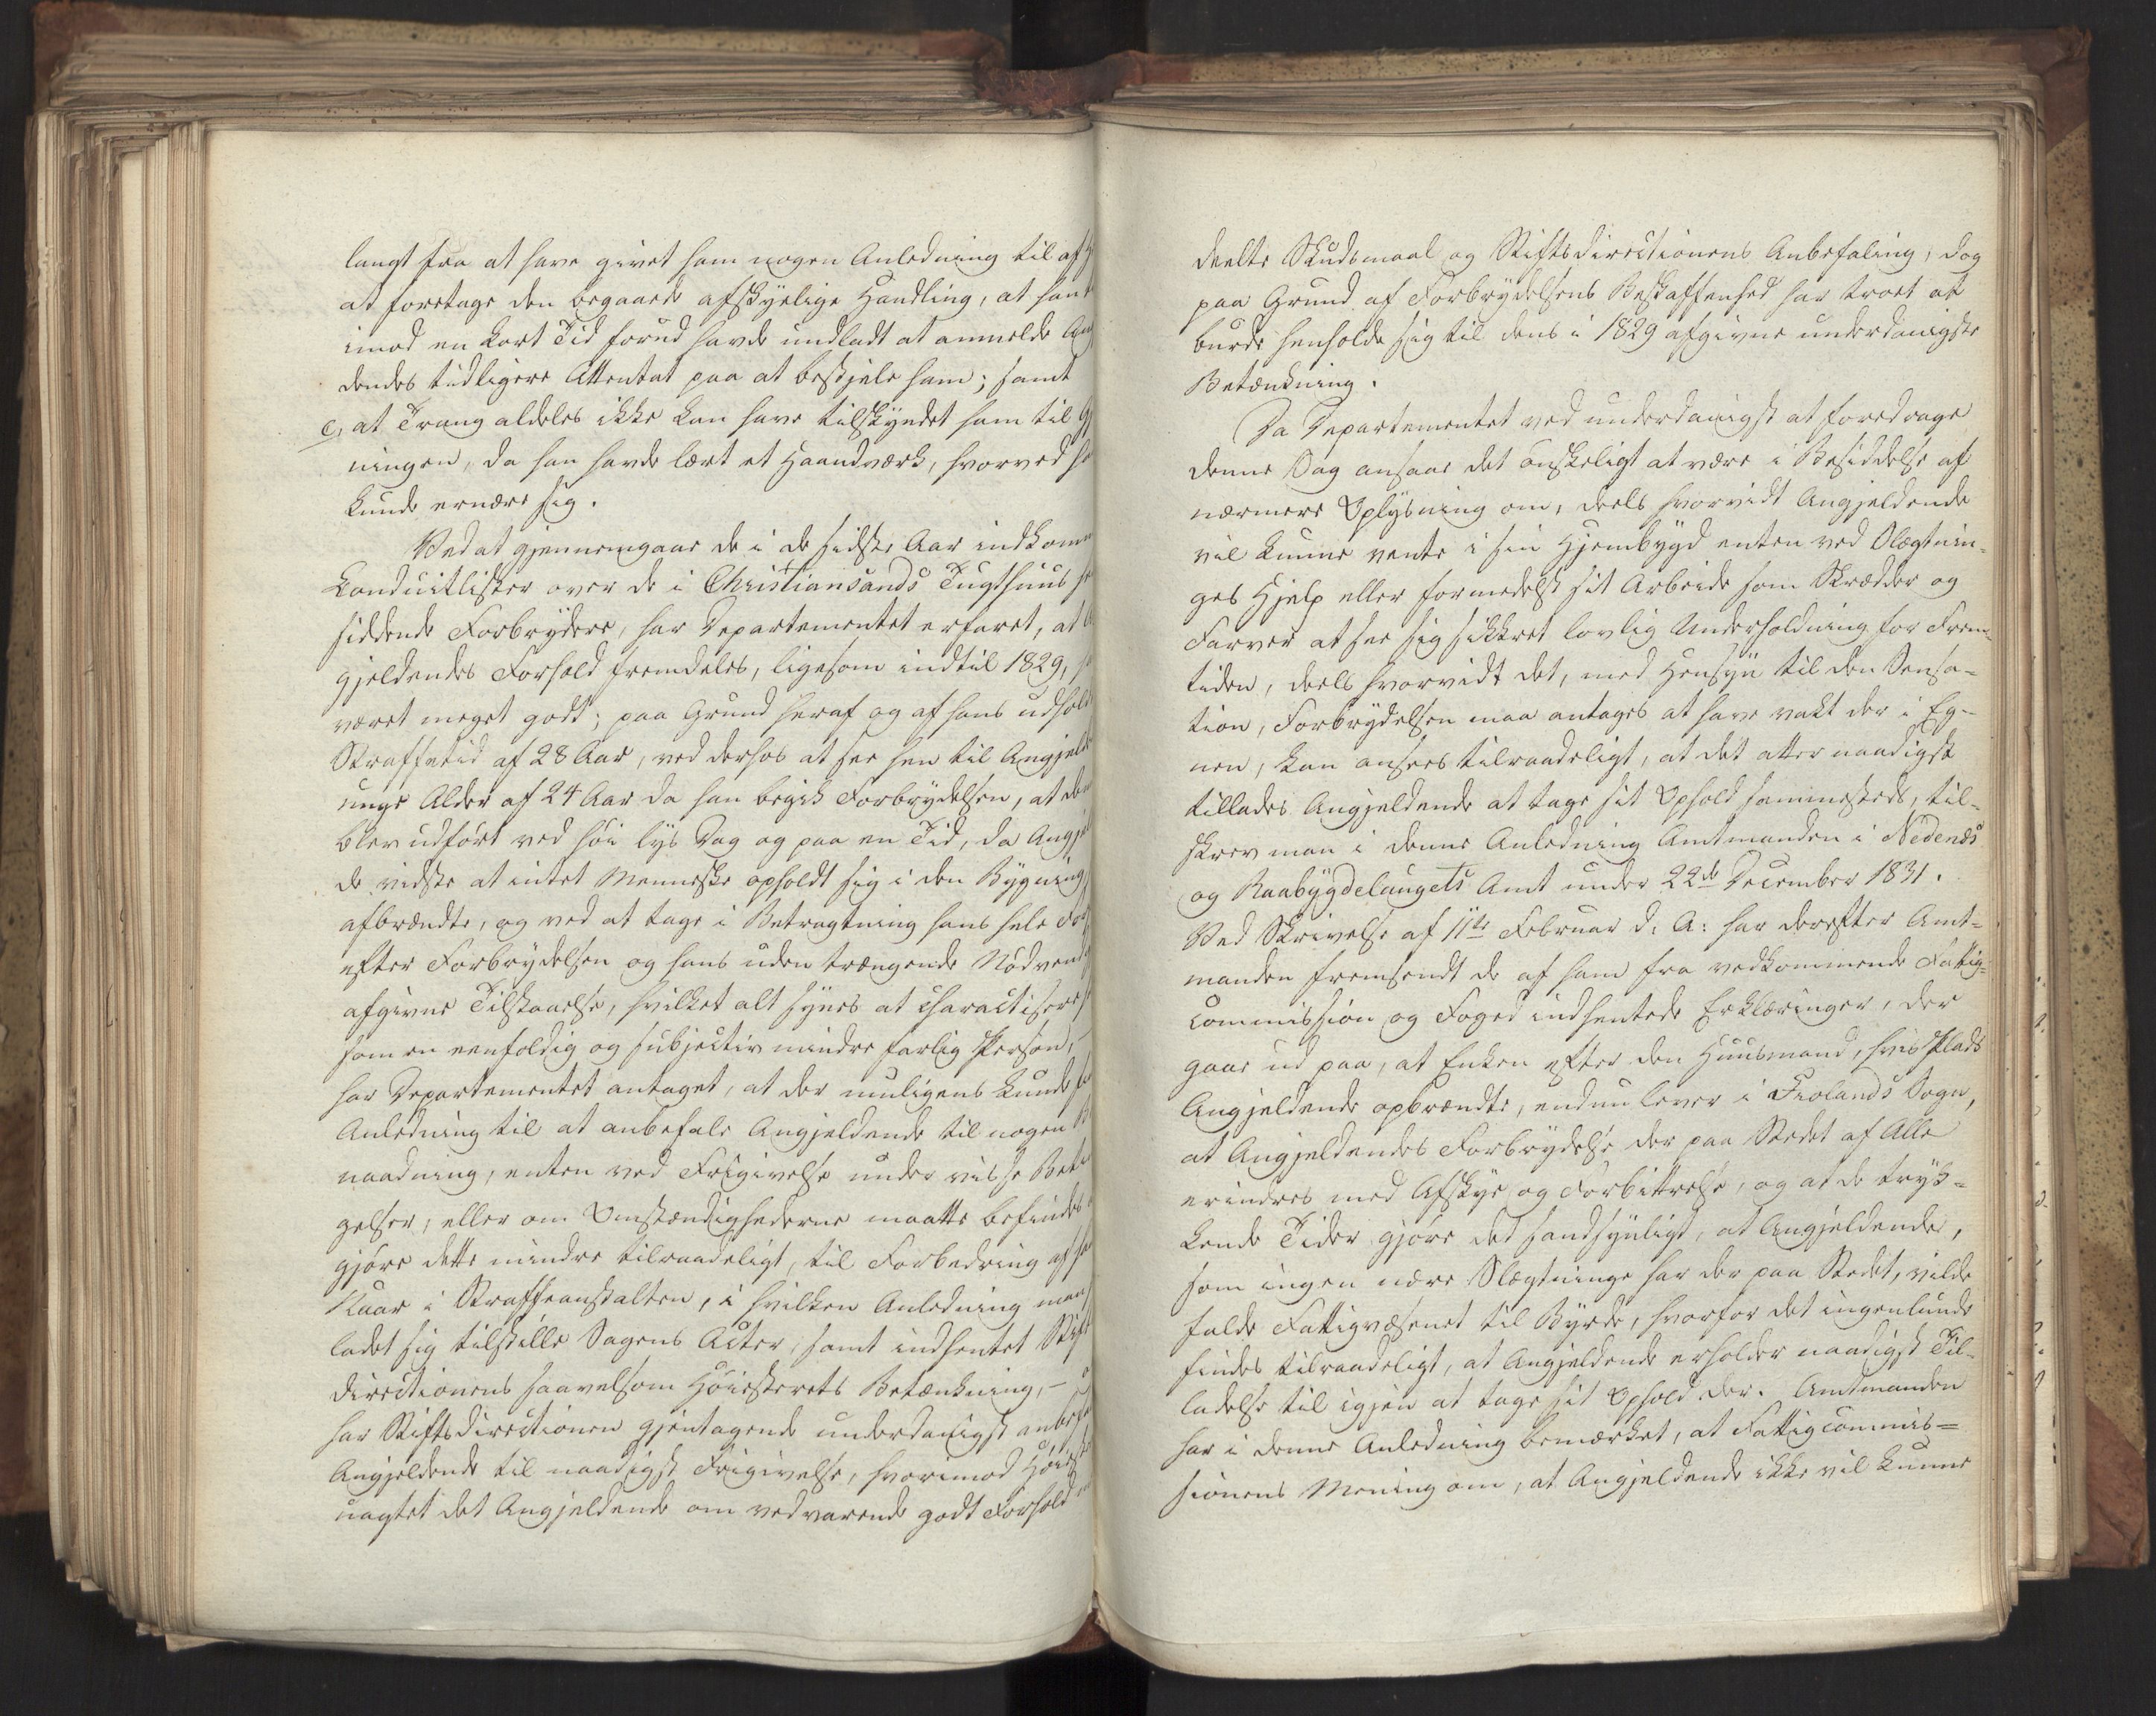 langt fra at have givet ham nogen Anledning til af
at foretage den begaaede afskyelige Handling, at han
imod en kort Tid forud havde undladt at anmelde Ang
dendes tidligere Attentat paa at bestjæle ham; samt
c, at Trang aldeles ikke kan have tilskyndet ham til Gj
ningen, da han havde lært et Haandværk, hvorved ha
kunde ernære sig.
Ved at gjennemgaae de i de sidste Aar indkomne
Conduitlister over de i Christiansands Tugthuus
siddende Forbrydere, har Departementet erfaret, at
gjeldendes Forhold fremdeles, ligesom indtil 1829,
været meget godt; paa Grund heraf og af hans udhold
Straffetid af 28 Aar, ved derhos at see hen til Angjeld
unge Alder af 24 Aar da han begik Forbrydelsen, at den
blev udført ved høi lys Dag og paa en Tid, da Angjel
de vidste at intet Menneske opholdt sig i den Bygning,
afbrændte, og ved at tage i Betragtning hans hele For
efter Forbrydelsen og hans uden trængende Nødvend
afgivne Tilstaaelse, hvilket alt synes at charactisere
ham en eenfoldig og subjectiv mindre farlig Person,-
har Departementet antaget, at der muligens kunde
Anledning til at anbefale Angjeldende til nogen B
naadning, enten ved Frigivelse under visse Betin
gelser, eller om Omstændighederne maatte befindes
gjøre dette mindre tilraadeligt, til Forbedring af ha
Kaar i Straffeanstalten, i hvilken Anledning man
ladet sig tilstille Sagens Acter, samt indhentet Stift
directionens saavelsom Høiesterets Betænkning,-
har Stiftsdirectionen gjentagende underdanigst anbefa
Angjeldende til naadigst Frigivelse, hvorimod Høieste
uagtet det Angjeldende om vedvarende godt Forhold
deelte Skudsmaal og Stiftsdirectionens Anbefaling, dog
paa Grund af Forbrydelsens Beskaffenhed har troet at
burde henholde sig til dens i 1829 afgivne underdanigste
Betænkning.
Da Departementet ved underdanigst at foredrage
denne Sag ansaae det ønskeligt at være i Besiddelse af
nærmere Oplysning om, deels hvorvidt Angjeldende
vil kunne vente i sin Hjembygd enten ved Slægtnin-
ges Hjelp eller formedelst sit Arbeide som Skrædder og
Farver at see sig sikkret lovlig Underholdning for Frem-
tiden, deels hvorvidt det, med Hensyn til den Sensa-
tion, Forbrydelsen maa antages at have vakt der i Eg-
nen, kan ansees tilraadeligt, at det atter naadigst
tillades Angjeldende at tage sit Ophold sammesteds, til-
skrev man i denne Anledning Amtmanden i Nedenæs
og Raabygdelaugets Amt under 22de December 1831.
Ved Skrivelse af 11te Februar d: A: har derefter Amt-
manden fremsendt de af ham fra vedkommende Fattig-
commission og Foged indhentede Erklæringer, der
gaae ud paa, at Enken efter den Huusmand, hvis Plads
Angjeldende opbrændte, endnu lever i Frolands Sogn,
at Angjeldendes Forbrydelse der paa Stedet af Alle
erindres med Afskye og Forbittrelse, og at de tryk-
kende Tider gjøre det sandsynligt, at Angjeldende,
som ingen nære Slægtninge har der paa Stedet, vilde
falde Fattigvæsenet til Byrde, hvorfor det ingenlunde
findes tilraadeligt, at Angjeldende erholder naadigst Til-
ladelse til igjen at tage sit Ophold der. Amtmanden
har i denne Anledning bemærket, at Fattigcommis-
sionens Mening om, at Angjeldende ikke vil kunne